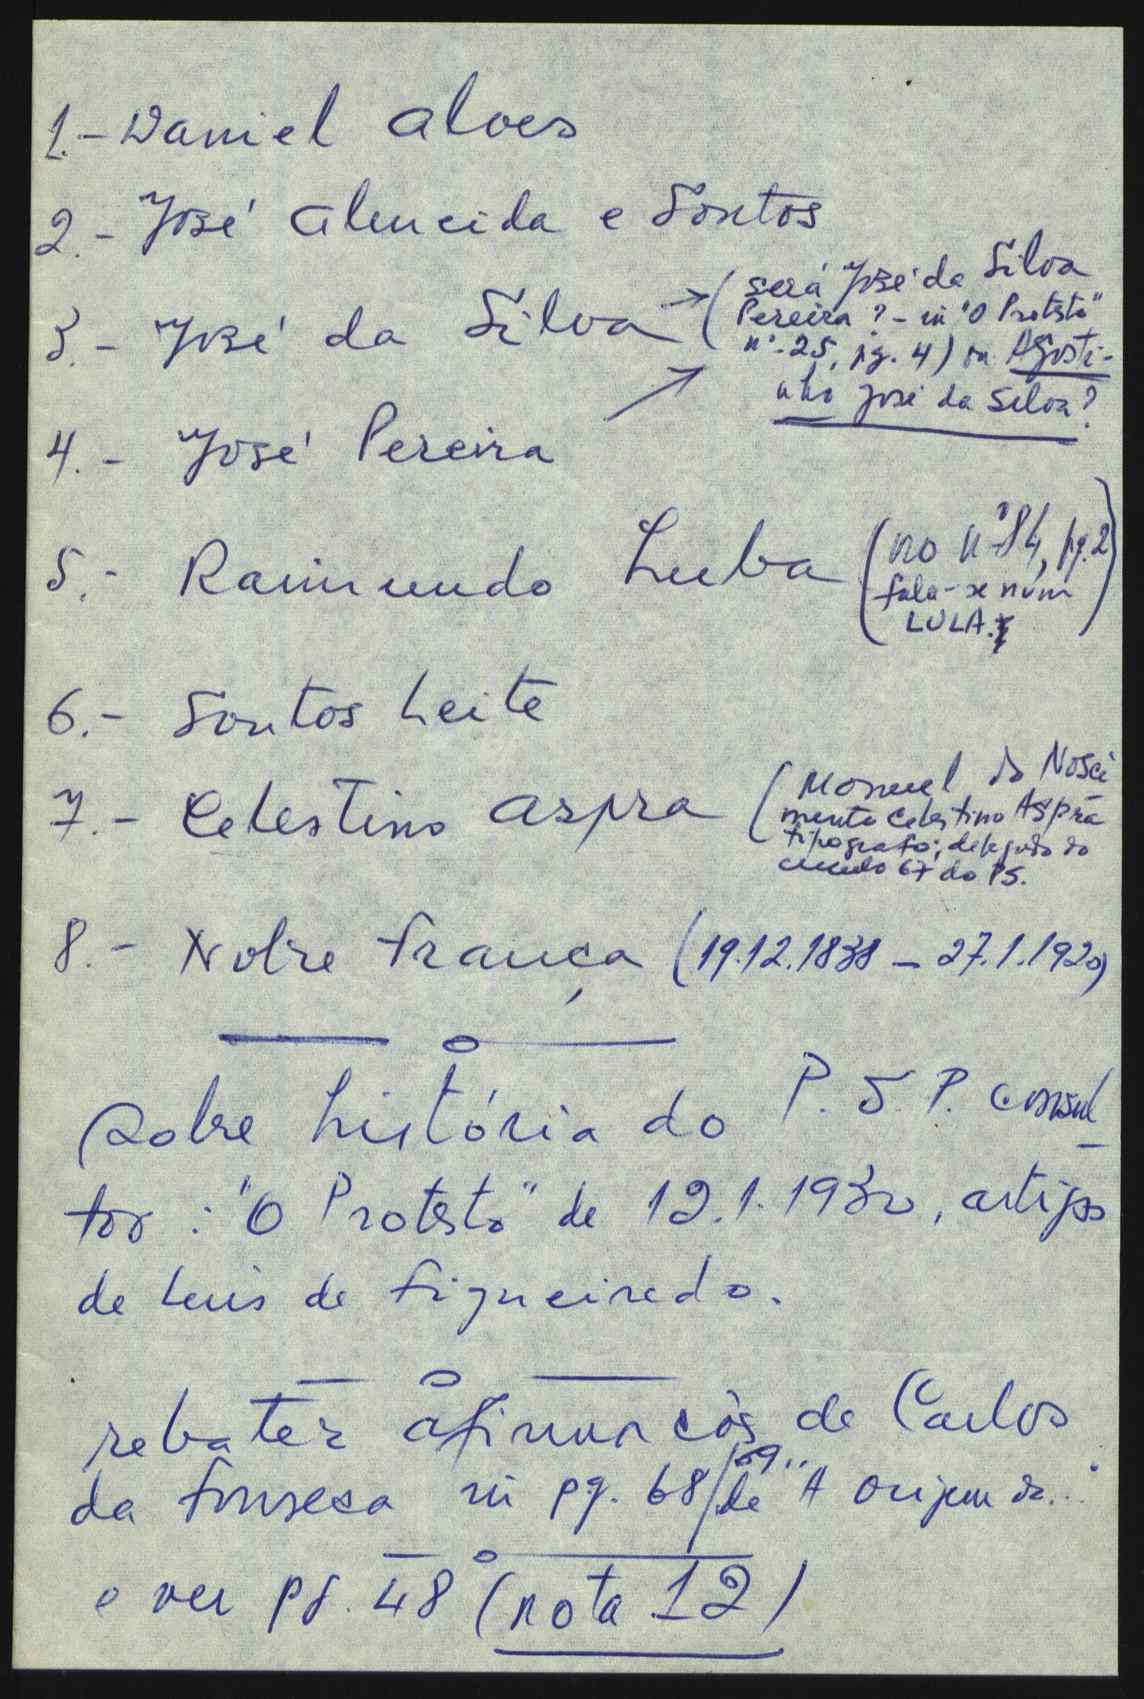 1.- Daniel Alves
2.- José Almeida e Santos
3.- José da Silva → (será José da Silva
Pereira? - in "O Protesto"
nº-25, pg. 4) ou Agosti-
nho José da Silva?
4.- José Pereira
5.- Raimundo Luba (no nº 84, pg. 2
fala-se num
LULA.)
6.- Santos Leite
7.- Celestino Aspra (Manuel do Nasci
mento Celestino Aspra
tipografo; delegado do
circulo 67 do PS.
8.- Nobre França (19.12.1838 - 27.1.1920)
Sobre história do P. S. P. consul
tar: "O Protesto" de 12.1.1930, artigo
de Luis de Figueiredo.
rebater afirmações de Carlos
da Fonseca in pg. 68/69 de "A Origem da..."
e ver pg. 48 (nota 12)